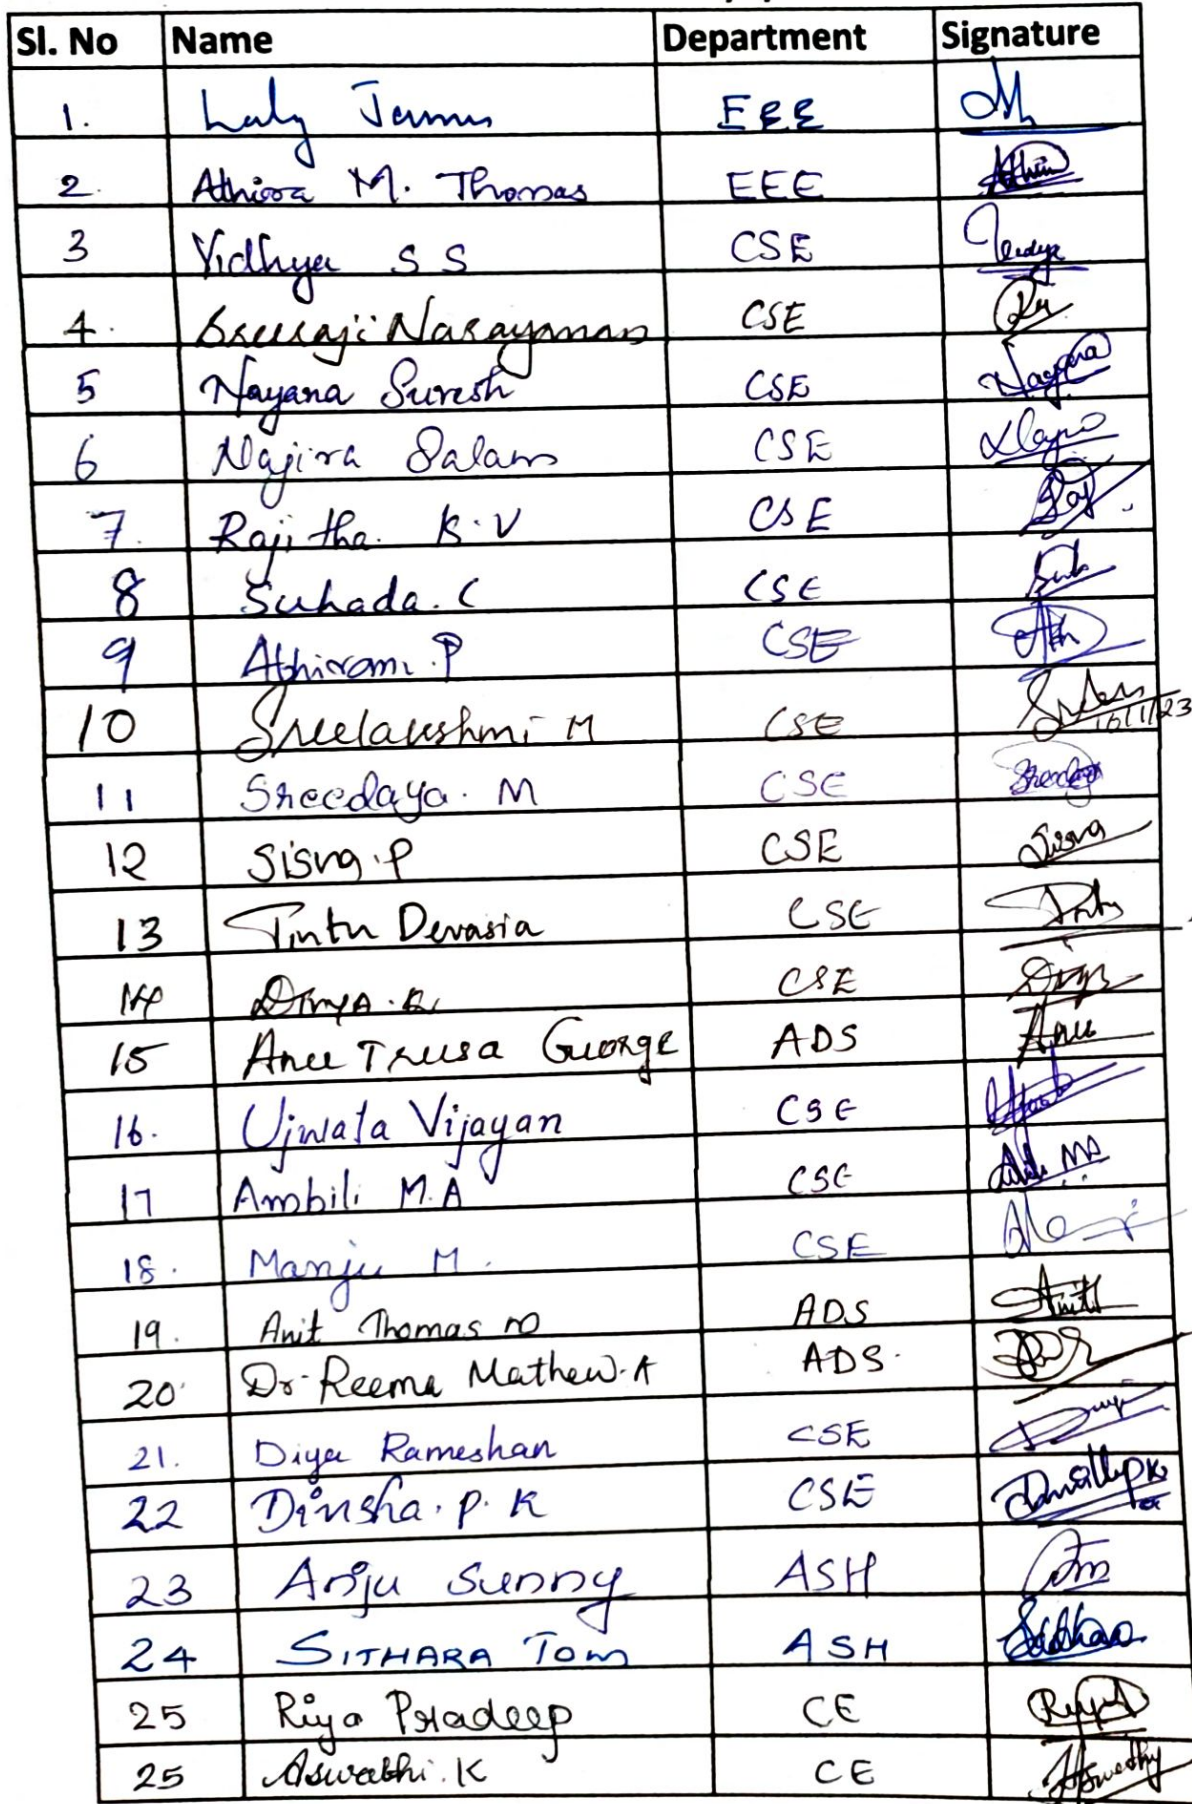 Sl. No Name Department Signature
1. Laly James EEE
2. Athira M. Thomas EEE Athira
3 Vidhya S S CSE Vidya
4. Sreeraji Narayanan CSE
5 Nayana Suresh CSE Nayana
6 Najira Salam CSE
7. Rajitha. K.V CSE Raj
8 Suhada. C CSE
9 Abhirami. P CSE
10 Sreelakshmi M CSE 10/1/23
11 Sreedaya. M CSE Sreedaya
12 Sisna. P CSE Sisna
13 Tintu Devasia CSE Tintu
14 Divya. CSE Divya
15 Anu Treesa George ADS Anu
16. Ujwala Vijayan CSE
17 Ambili M.A CSE
18. Manju M. CSE
19. Anit Thomas M ADS Anit
20 Dr. Reema Mathew. A ADS.
21. Diya Rameshan CSE
22 Dinsha. P. K CSE
23 Anju Sunny ASH
24 SITHARA Tom ASH
25 Riya Pradeep CE
25 Aswathi. K CE Aswathy